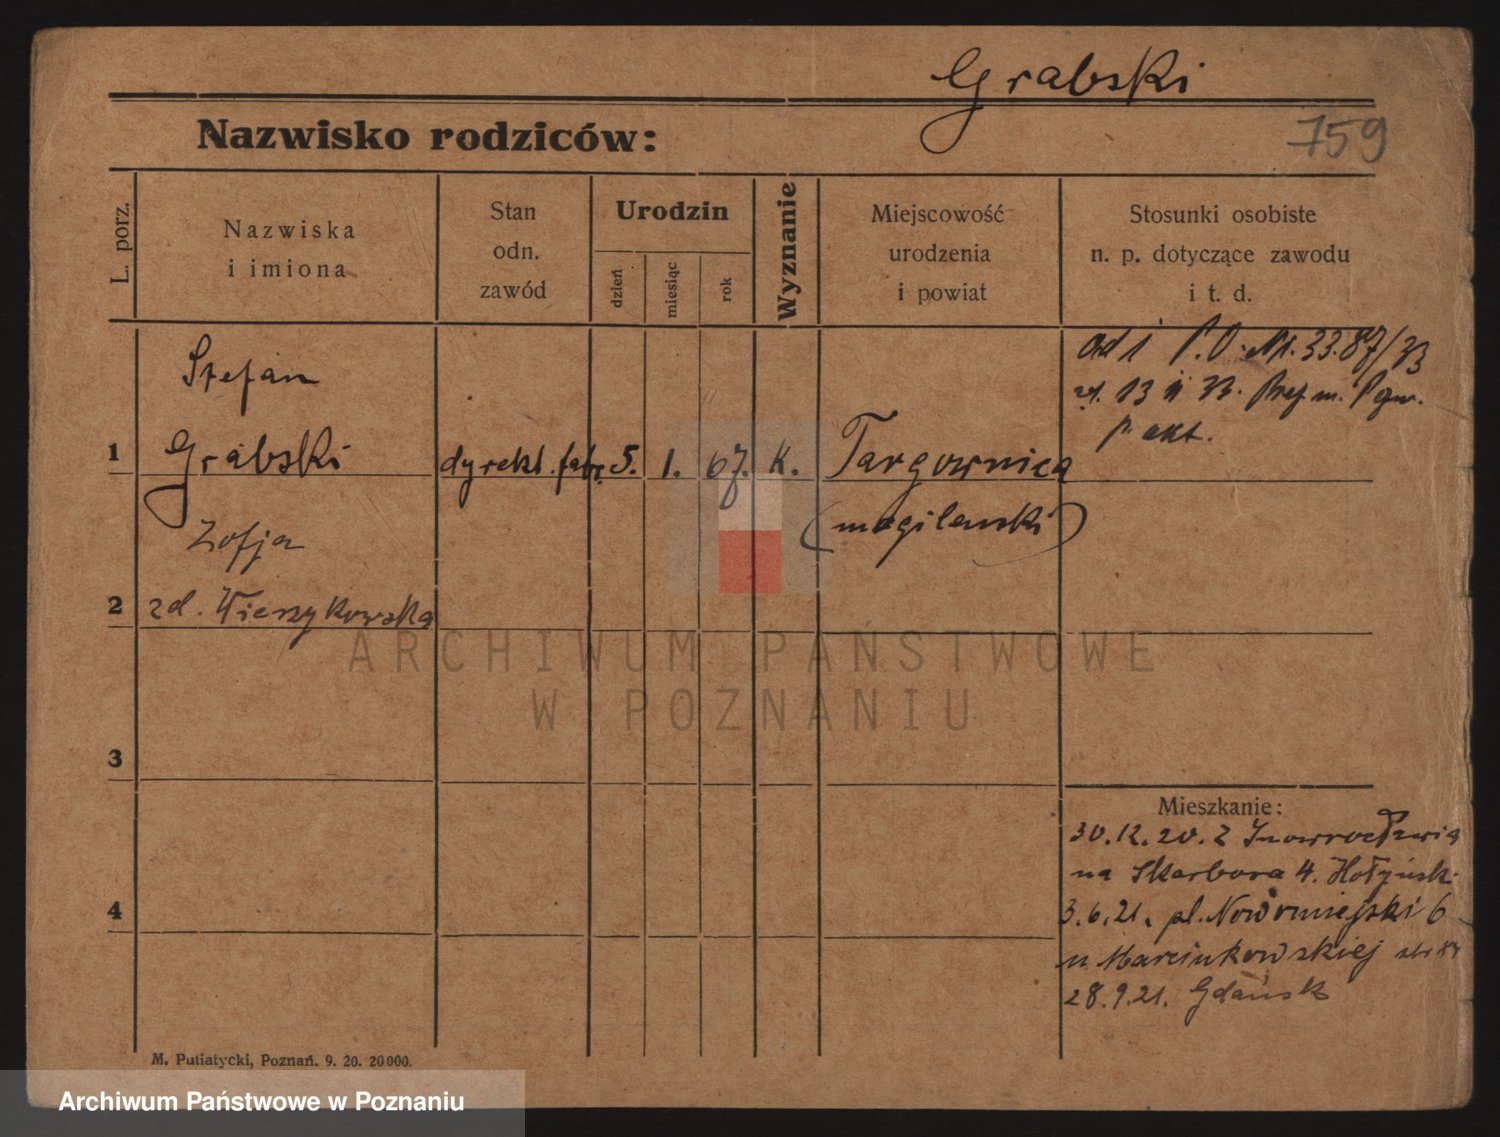 Grabski
Nazwisko rodziców:
759
L. porz.
Nazwiska
i imiona
Stan
odn.
zawód
Urodzin
dzień
miesiąc
rok
Wyznanie
Miejscowość
urodzenia
i powiat
Stosunki osobiste
n. p. dotyczące zawodu
i t. d.
1
Stefan
Grabski
dyrekt. fabr.
5.
1.
67.
K.
Targownica
(mogilenski)
33.87/33
13 II 33.
akt.
2
Zofja
zd. Wierzykowska
3
4
Mieszkanie:
30.12.20. Z Inowrocławia
na Skarbowa 4.
3.6.21. pl. Nowomiejski 6
u Marcinkowskiej
28.9.21. Gdańsk
ARCHIWUM PAŃSTWOWE
W POZNANIU
M. Putiatycki, Poznań. 9. 20. 20000.
Archiwum Państwowe w Poznaniu